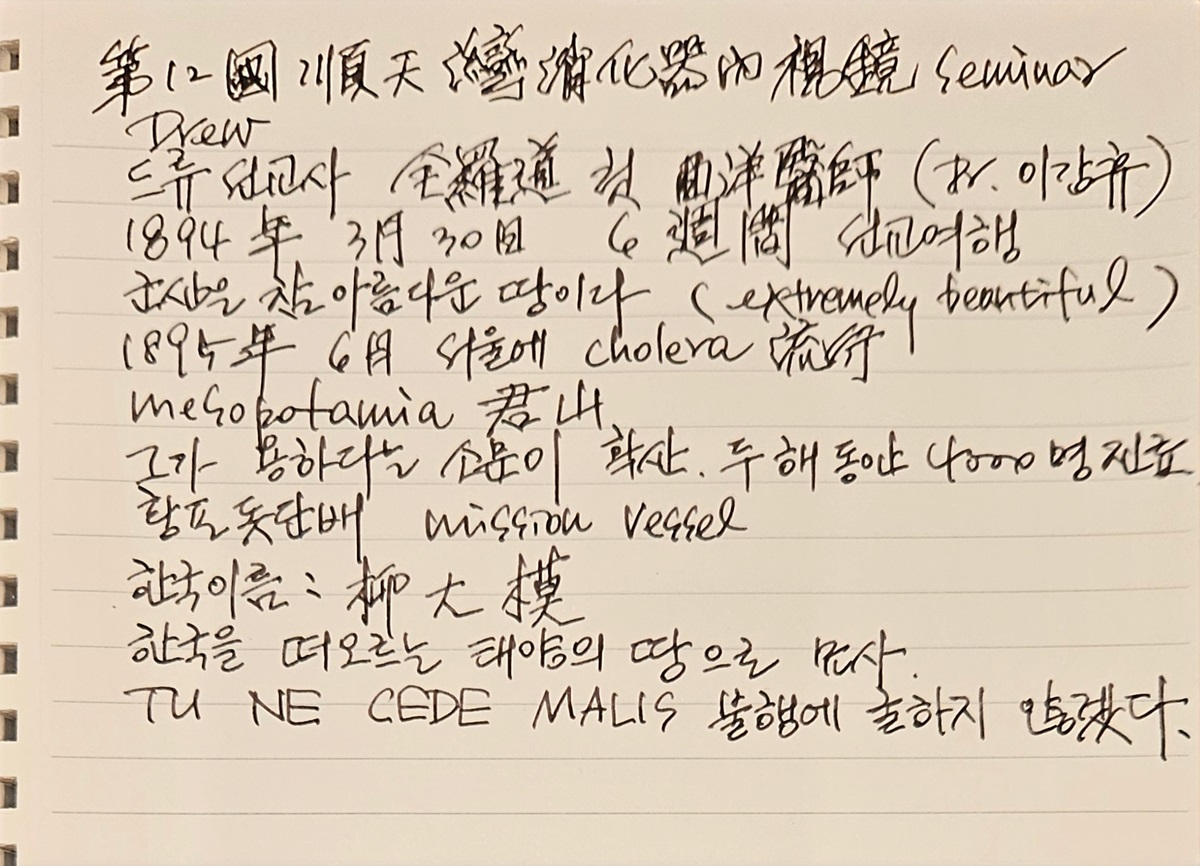 第12回 順天灣消化器內視鏡 seminar
Drew
드류 선교사 全羅道 첫 西洋醫師 (Dr. 이강휴)
1894年 3月 30日 6週間 선교여행
군산은 참 아름다운 땅이다 (extremely beautiful)
1895年 6月 서울에 cholera 流行
mesopotamia 君山
그가 용하다는 소문이 확산. 두해동안 4000명 진료
황포돛단배 mission vessel
한국이름: 柳大模
한국을 떠오르는 태양의 땅으로 묘사.
TU NE CEDE MALIS 불행에 굴하지 않겠다.